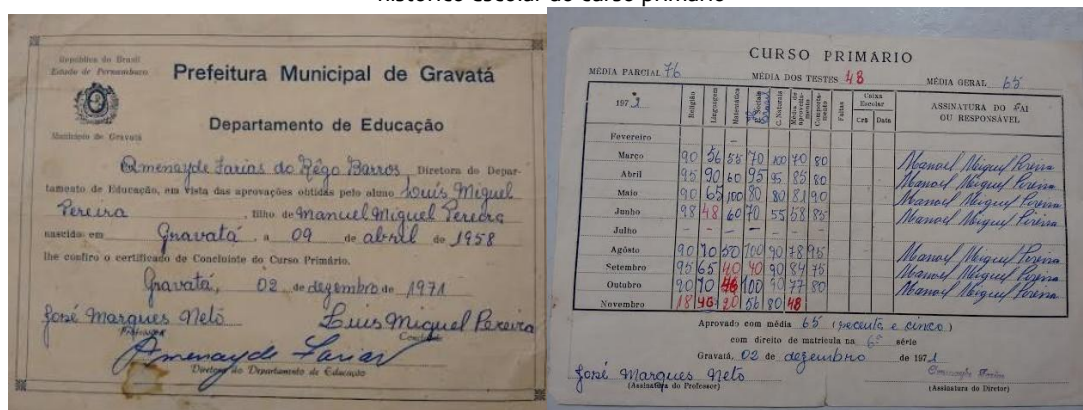 histórico escolar do curso primário
República do Brasil
Estado de Pernambuco
Prefeitura Municipal de Gravatá
Município de Gravatá
Departamento de Educação
Amenayde Farias do Rêgo Barros Diretora do Depar-
tamento de Educação, em vista das aprovações obtidas pelo aluno Louís Miguel
Pereira, filho de Manuel Miguel Pereira
nascido em Gravatá a 09 de abril de 1958
lhe confiro o certificado de Concluinte do Curso Primário.
Gravatá, 02 de dezembro de 1971
José Marques Neto Luis Miguel Pereira
Professor Concluinte
Amenayde Farias
Diretora do Departamento de Educação
CURSO PRIMÁRIO
MÉDIA PARCIAL 76 MÉDIA DOS TESTES 48 MÉDIA GERAL 65
1971 Religião Linguagem Matemática E. Sociais Brasil C. Naturais Média de aproveitamento Comportamento Faltas Caixa Escolar Cr$ Data ASSINATURA DO PAI OU RESPONSÁVEL
Fevereiro –
Março 90 56 55 70 100 70 80 Manoel Miguel Pereira
Abril 95 90 60 95 95 85 80 Manoel Miguel Pereira
Maio 90 65 100 80 80 81 90 Manoel Miguel Pereira
Junho 98 48 60 70 55 58 85 Manoel Miguel Pereira
Julho – – – – – – –
Agôsto 90 70 50 100 90 78 95 Manoel Miguel Pereira
Setembro 95 65 40 90 84 75 Manoel Miguel Pereira
Outubro 90 70 46 100 90 77 80 Manoel Miguel Pereira
Novembro 18 46 20 56 80 48
Aprovado com média 65 (secenta e cinco)
com direito de matrícula na 6ª série
Gravatá, 02 de dezembro de 1971
José Marques Neto
(Assinatura do Professor) (Assinatura do Diretor)